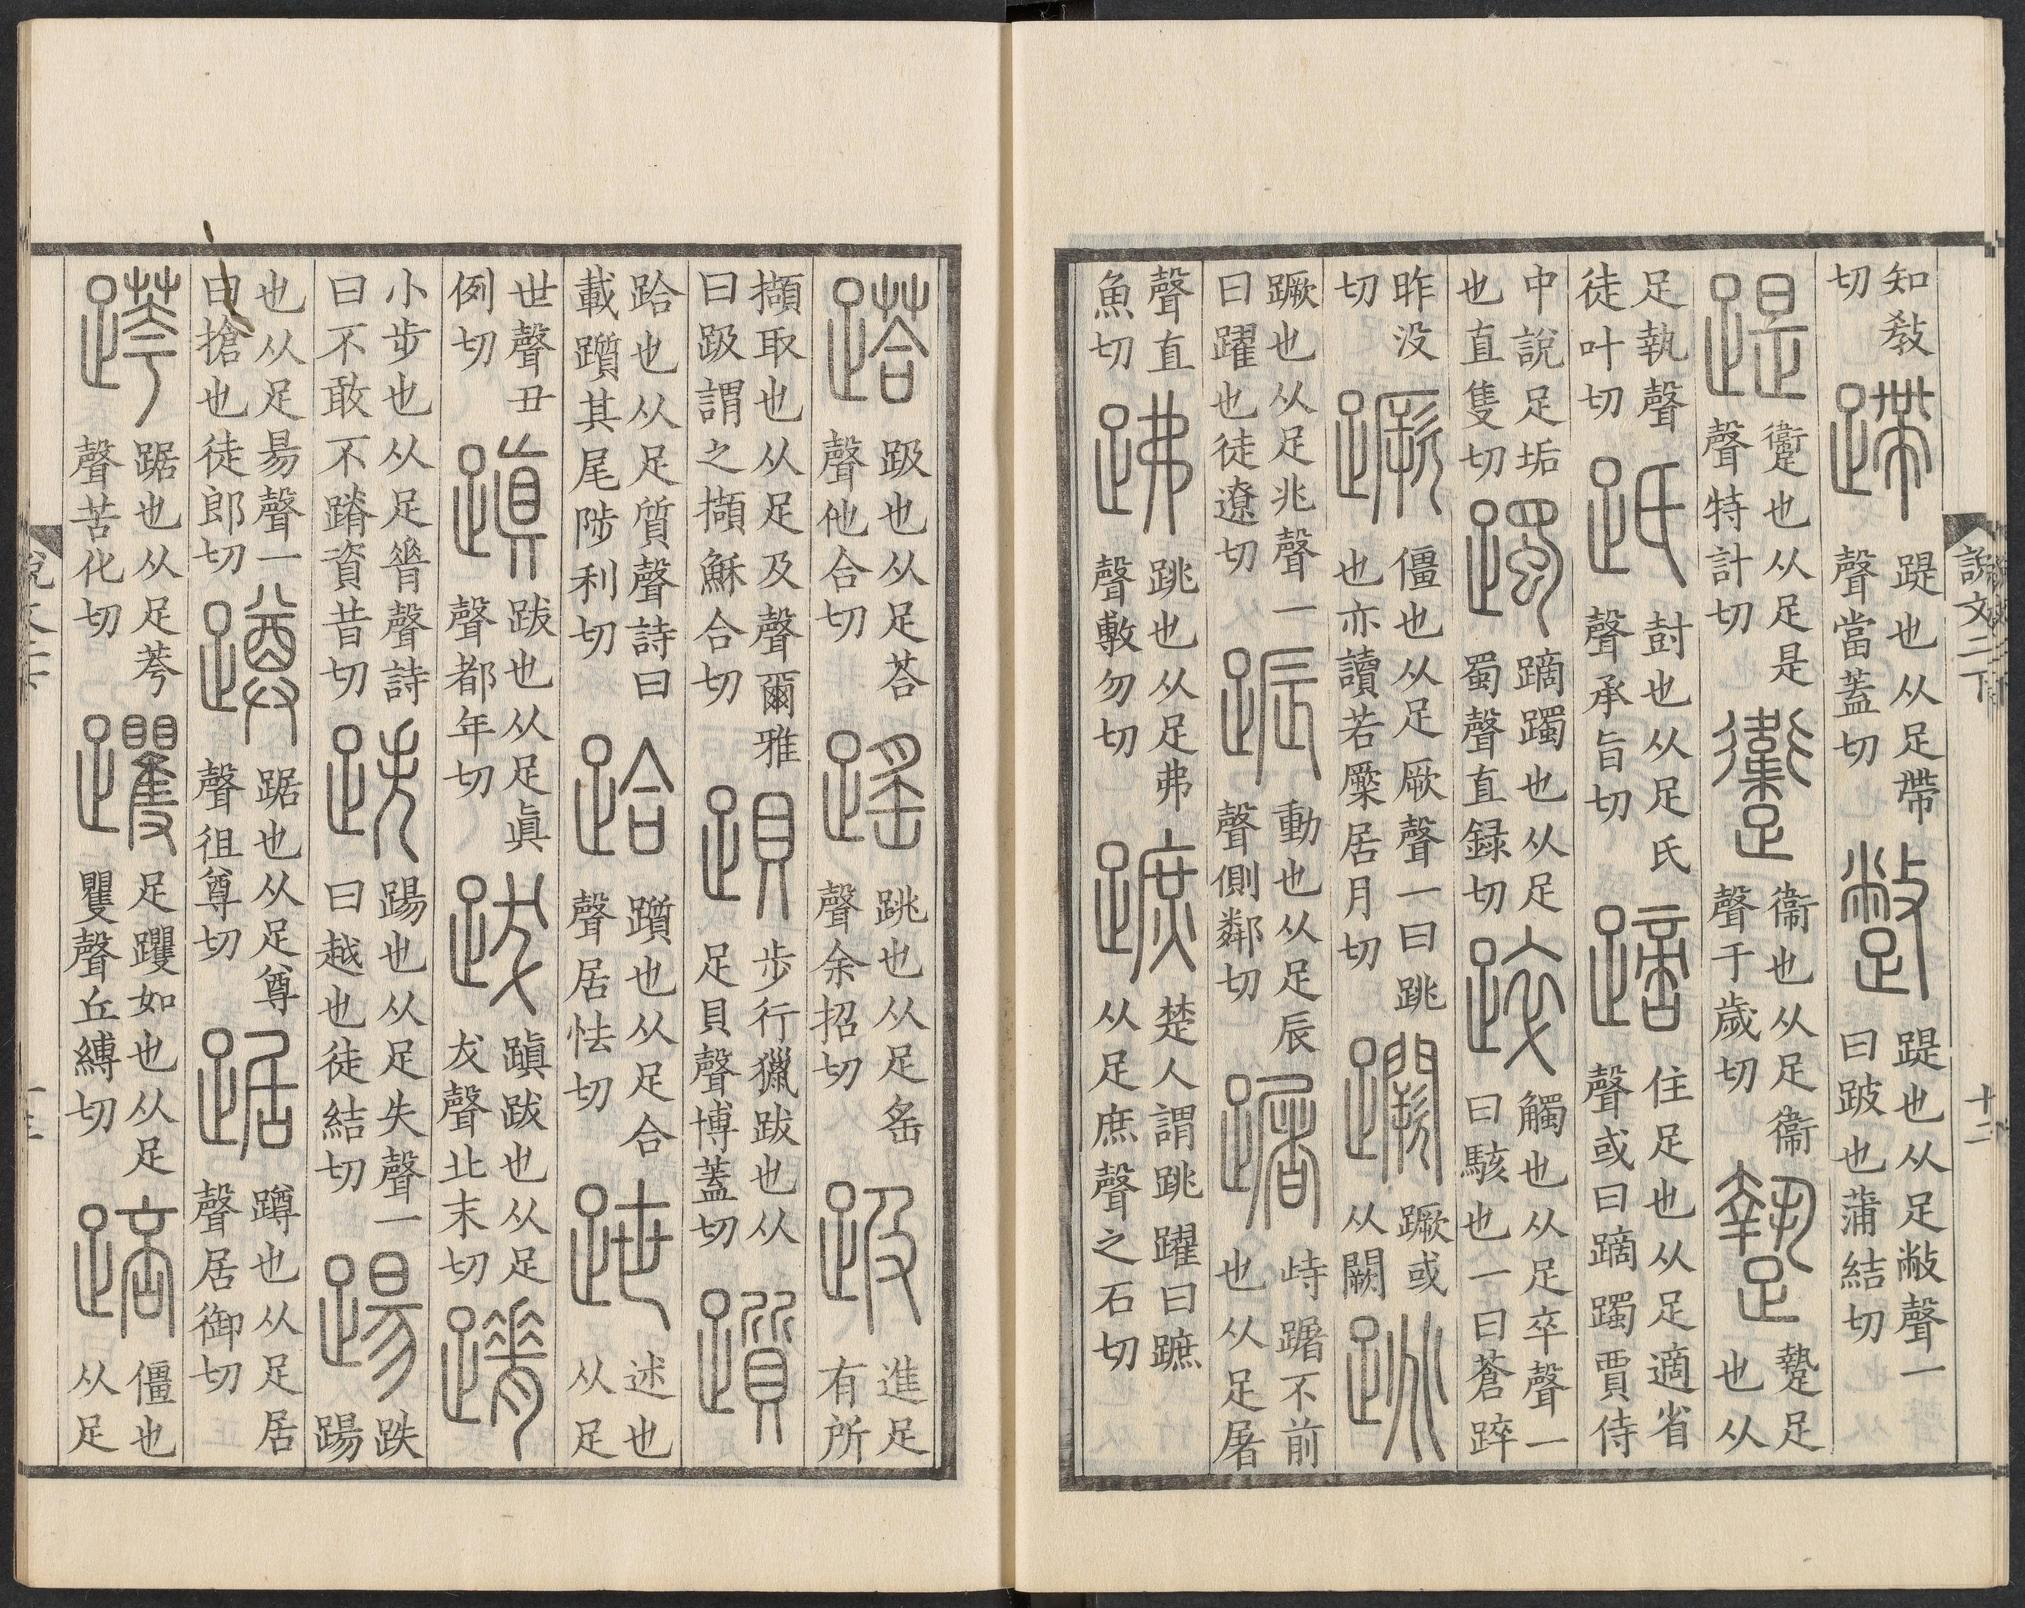 知敎切蹛踶也从足帶聲當蓋切蹩踶也从足敝聲一曰跛也蒲結切
踶躗也从足是聲特計切躗衞也从足衞聲于歲切足也从
足執聲徒叶切尌也从足氏聲承旨切蹢住足也从足適省聲或曰蹢躅賈侍
中說足垢也直隻切躅蹢躅也从足蜀聲直録切踤觸也从足卒聲一曰駭也一曰蒼踤
昨没切蹶僵也从足厥聲一曰跳也亦讀若橜居月切蹶或从闕跳
蹶也从足兆聲一曰躍也徒遼切踬動也从足辰聲側鄰切䠧峙䠧不前也从足屠
聲直魚切跳也从足弗聲敷勿切蹠楚人謂跳躍曰蹠从足庶聲之石切
說文二下
十二
踏趿也从足荅聲他合切跳也从足䍃聲余招切趿進足有所
擷取也从足及聲爾雅曰趿謂之擷穌合切跟步行獵跋也从足貝聲博蓋切躓
跲也从足質聲詩曰載躓其尾陟利切跲躓也从足合聲居怯切跇述也从足
世聲丑例切蹎跋也从足眞聲都年切跋蹎跋也从足犮聲北末切蹐
小步也从足脊聲詩曰不敢不蹐資昔切跌踼也从足失聲一曰越也徒結切踼跌踼
也从足昜聲一曰搶也徒郎切蹲踞也从足尊聲徂尊切踞蹲也从足居聲居御切
跨踞也从足荂聲苦化切躩足躩如也从足矍聲丘縛切踣僵也从足